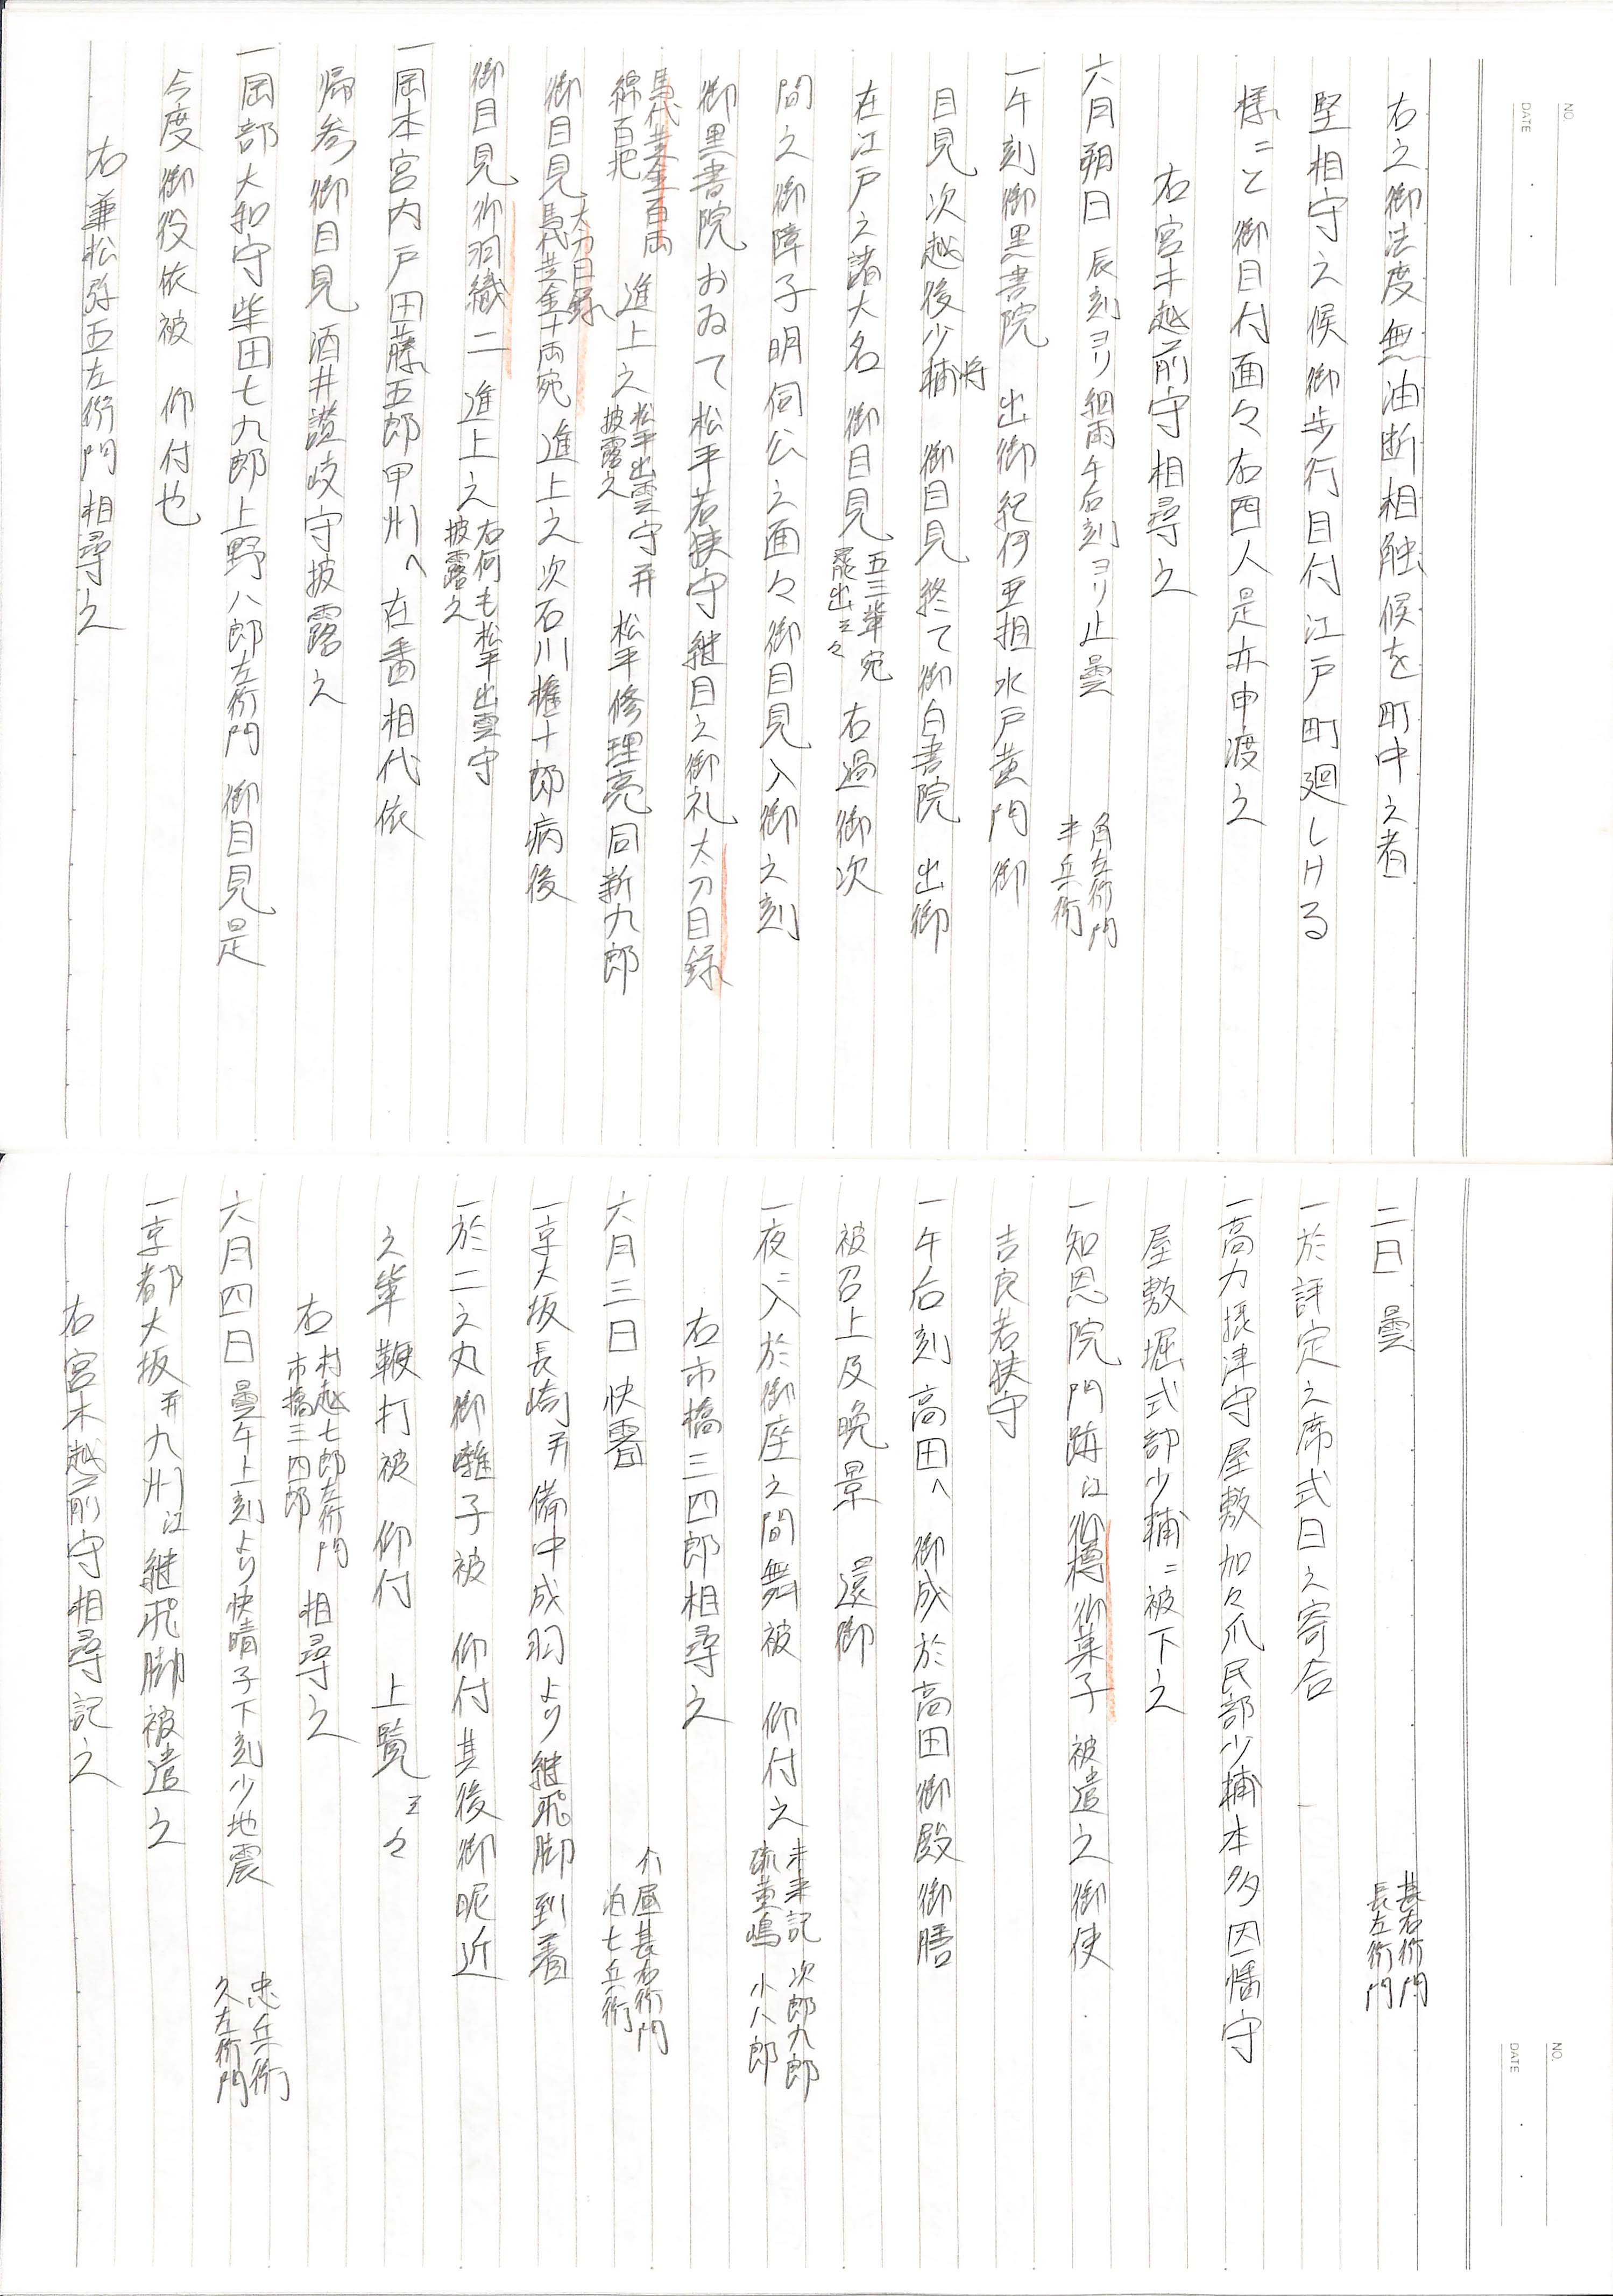 右之御法度無油断相触候を町中之者
堅相守之候御歩行目付江戸町廻しける
様ニと御目付面々右四人是亦申渡之
右宮木越前守相尋之
六月朔日 辰刻ヨリ細雨午后刻ヨリ止曇 角左衛門 半兵衛
一午刻御黒書院 出御紀伊亜相水戸黄門御
目見次越後少輔将 御目見終て御白書院 出御
在江戸之諸大名 御目見 五三輩宛罷出云々 右過御次
間之御障子明伺公之面々御目見入御之刻
御黒書院おゐて松平若狭守継目之御礼太刀目録
馬代黄金百両 綿百把 進上之 松平出雲守披露之 并 松平修理亮同新九郎
御目見 太刀目録 馬代黄金十両宛 進上之次石川権十郎病後
御目見御羽織二 進上之 右何も松平出雲守披露之
一岡本宮内戸田藤五郎甲州へ在番相代依
帰参御目見酒井讃岐守披露之
一岡部大和守柴田七九郎上野八郎左衛門 御目見是
今度御役依被 仰付也
右兼松弥五左衛門相尋之
NO.
DATE
二日 曇 甚右衛門 長左衛門
一於評定之席式日之寄合
一高力摂津守屋敷加々爪民部少輔本多因幡守
屋敷堀式部少輔ニ被下之
一知恩院門跡江御樽御菓子 被遣之御使
吉良若狭守
一午后刻高田へ 御成於高田御殿御膳
被召上及晩景 還御
一夜ニ入於御座之間舞被 仰付之 未来記 次郎九郎 硫黄嶋 小八郎
右市橋三四郎相尋之
六月三日 快霽 介屋甚右衛門 泊七兵衛
一京大坂長崎并備中成羽より継飛脚到着
一於二之丸御囃子被 仰付其後御昵近
之輩鞭打被 仰付 上覧云々
右 村越七郎左衛門 市橋三四郎 相尋之
六月四日 曇午上刻より快晴子下刻少地震 忠兵衛 久左衛門
一京都大坂并九州江継飛脚被遣之
右宮木越前守相尋記之
NO.
DATE